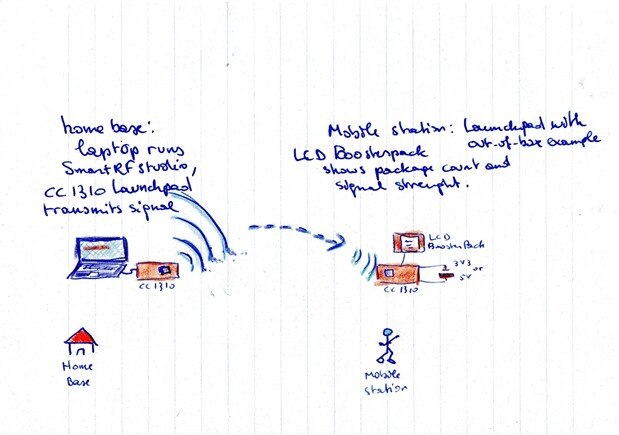 home base:
laptop runs
SmartRF Studio,
CC1310 Launchpad
transmits signal
Mobile station: Launchpad with
out-of-box example
LCD Boosterpack
shows package count and
signal strenght.
LCD
BoosterPack
CC1310
CC1310
3V3
or
5V
Home
Base
Mobile
station